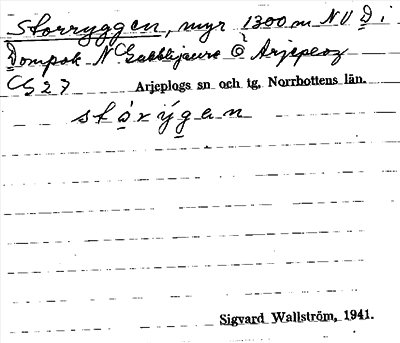 Storryggen, myr 1300 m NV D i
Dompok N Gakktjaure Ö Arjeplog
CG 27 Arjeplogs sn och tg, Norrbottens län.
stórýgen
Sigvard Wallström, 1941.